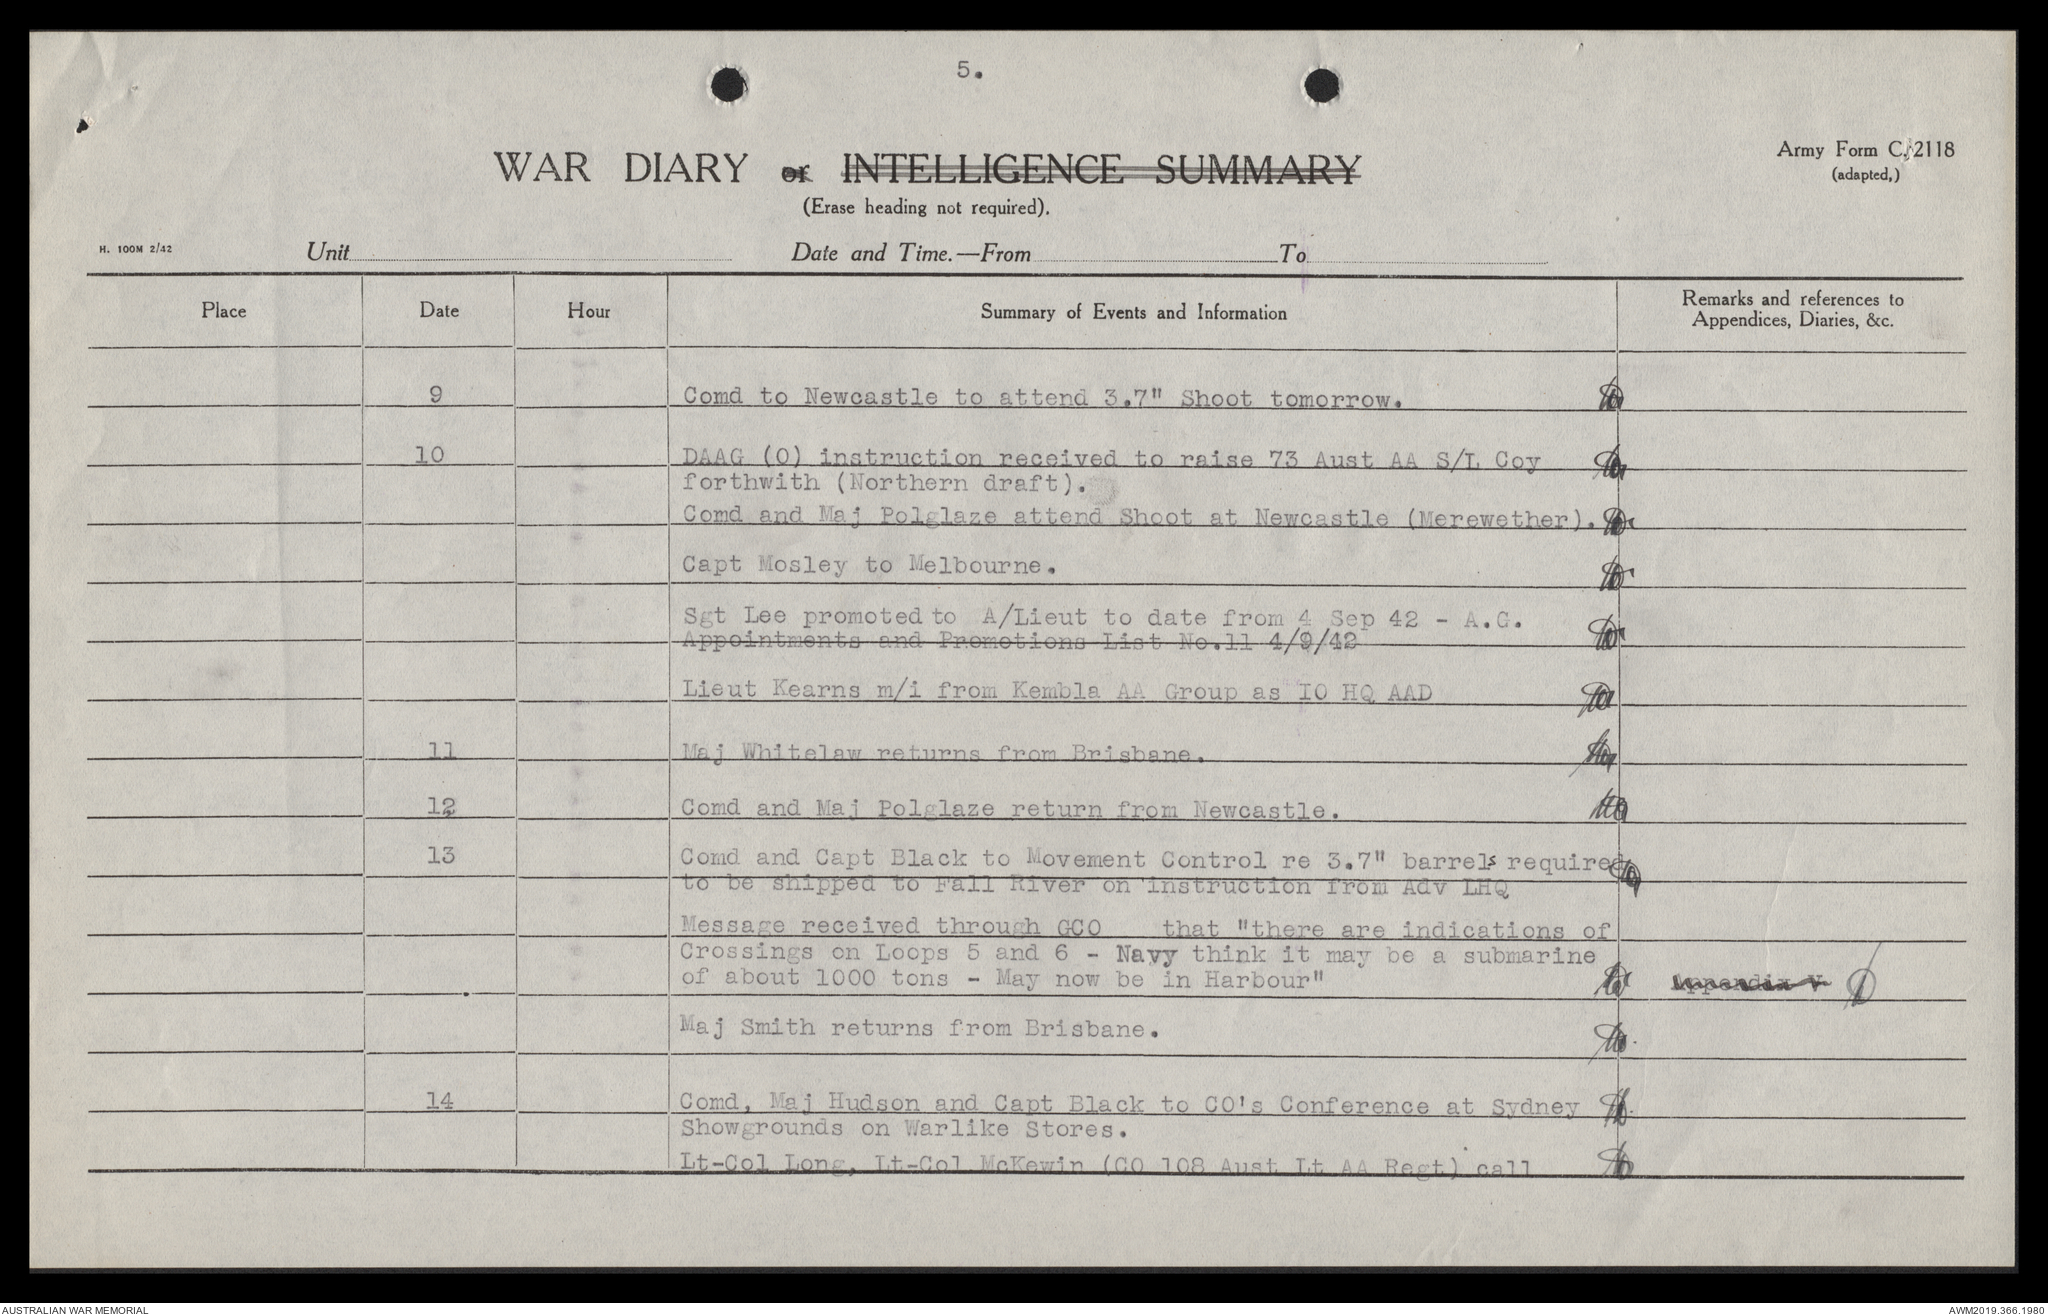 5.
Army Form C.2118
(adapted.)
WAR DIARY or INTELLIGENCE SUMMARY
(Erase heading not required).
H. 100M 2/42
Unit
Date and Time.—From
To
Place
Date
Hour
Summary of Events and Information
Remarks and references to
Appendices, Diaries, &c.
9
Comd to Newcastle to attend 3.7" Shoot tomorrow.
10
DAAG (O) instruction received to raise 73 Aust AA S/L Coy
forthwith (Northern draft).
Comd and Maj Polglaze attend Shoot at Newcastle (Merewether).
Capt Mosley to Melbourne.
Sgt Lee promoted to A/Lieut to date from 4 Sep 42 - A.G.
Appointments and Promotions List No.11 4/9/42
Lieut Kearns m/i from Kembla AA Group as IO HQ AAD
11
Maj Whitelaw returns from Brisbane.
12
Comd and Maj Polglaze return from Newcastle.
13
Comd and Capt Black to Movement Control re 3.7" barrels required
to be shipped to Fall River on instruction from Adv LHQ
Message received through GCO that "there are indications of
Crossings on Loops 5 and 6 - Navy think it may be a submarine
of about 1000 tons - May now be in Harbour"
Appendix V
Maj Smith returns from Brisbane.
14
Comd, Maj Hudson and Capt Black to CO's Conference at Sydney
Showgrounds on Warlike Stores.
Lt-Col Long, Lt-Col McKewin (CO 108 Aust Lt AA Regt) call
AUSTRALIAN WAR MEMORIAL
AWM2019.366.1980